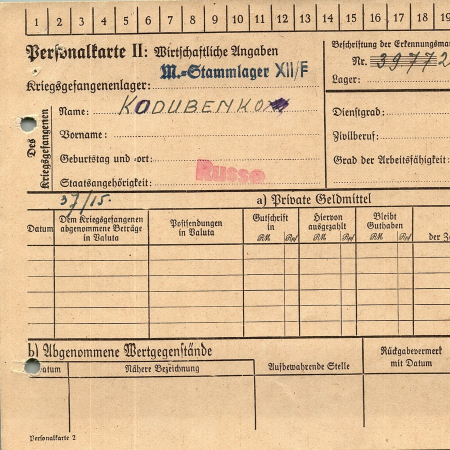 1 2 3 4 5 6 7 8 9 10 11 12 13 14 15 16 17 18 19
Personalkarte II: Wirtschaftliche Angaben
Beschriftung der Erkennungsmar
M.-Stammlager XII/F
Nr. 39772
Kriegsgefangenenlager:
Lager:
Des Kriegsgefangenen
Name: KODUBENKO
Dienstgrad:
Vorname:
Zivilberuf:
Geburtstag und -ort:
Grad der Arbeitsfähigkeit:
Staatsangehörigkeit: Russe
37/15.
a) Private Geldmittel
Datum
Dem Kriegsgefangenen abgenommene Beträge in Valuta
Postsendungen in Valuta
Gutschrift in
RM. Rpf
Hiervon ausgezahlt
RM. Rpf
Bleibt Guthaben
RM. Rpf
der Z
b) Abgenommene Wertgegenstände
Rückgabevermerk mit Datum
Datum
Nähere Bezeichnung
Aufbewahrende Stelle
Personalkarte 2